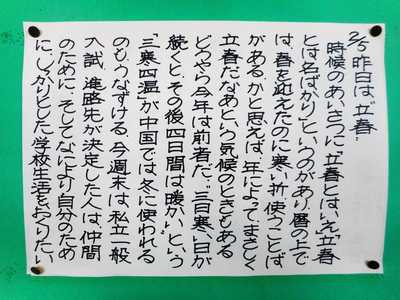 2/5 昨日は、立春.
時候のあいさつに「立春とはいえ」「立春
とは名ばかり」というのがあり、暦の上で
は、春を迎えたのに寒い折、使うことば
がある。かと思えば、年によって、まさしく
立春だなあという気候のときもある
どうやら今年は前者だ。"三日寒い日が
続くと、その後四日間は暖かい"という
「三寒四温」が中国では冬に使われる
のもうなずける。今週末は、私立一般
入試、進路先が決定した人は、仲間
のために、そしてなにより自分のため
に、しっかりとした学校生活をおくりたい